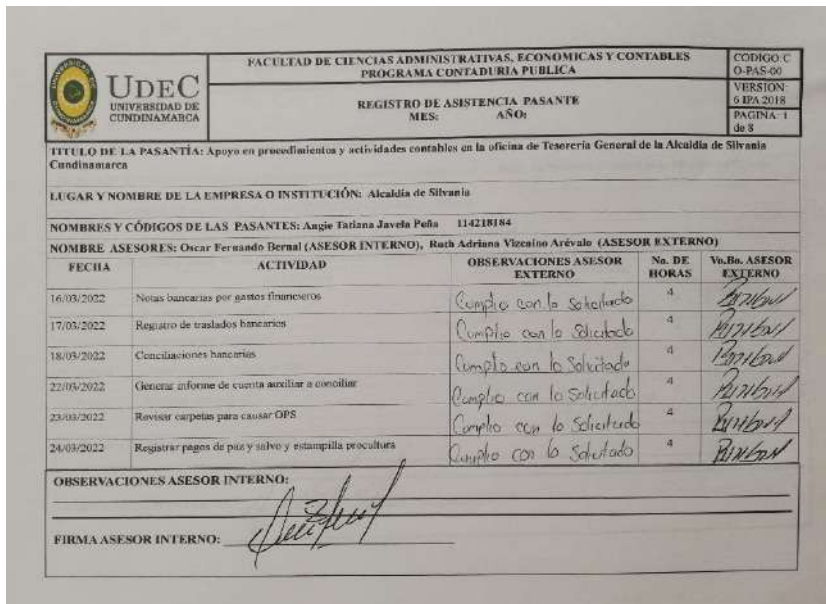 FACULTAD DE CIENCIAS ADMINISTRATIVAS, ECONOMICAS Y CONTABLES
PROGRAMA CONTADURIA PUBLICA
CODIGO: C
O-PAS-00
UDEC
UNIVERSIDAD DE
CUNDINAMARCA
REGISTRO DE ASISTENCIA PASANTE
MES: AÑO:
VERSION:
6 IPA 2018
PAGINA: 1
de 8
TITULO DE LA PASANTÍA: Apoyo en procedimientos y actividades contables en la oficina de Tesorería General de la Alcaldía de Silvania
Cundinamarca
LUGAR Y NOMBRE DE LA EMPRESA O INSTITUCIÓN: Alcaldía de Silvania
NOMBRES Y CÓDIGOS DE LAS PASANTES: Angie Tatiana Javela Peña 114218184
NOMBRE ASESORES: Oscar Fernando Bernal (ASESOR INTERNO), Ruth Adriana Vizcaino Arévalo (ASESOR EXTERNO)
FECHA ACTIVIDAD OBSERVACIONES ASESOR EXTERNO No. DE HORAS Vo.Bo. ASESOR EXTERNO
16/03/2022 Notas bancarias por gastos financieros Cumplio con lo Solicitado 4
17/03/2022 Registro de traslados bancarios Cumplio con lo Solicitado 4
18/03/2022 Conciliaciones bancarias Cumplio con lo Solicitado 4
22/03/2022 Generar informe de cuenta auxiliar a conciliar Cumplio con lo Solicitado 4
23/03/2022 Revisar carpetas para causar OPS Cumplio con lo Solicitado 4
24/03/2022 Registrar pagos de paz y salvo y estampilla procultura Cumplio con lo Solicitado 4
OBSERVACIONES ASESOR INTERNO:
FIRMA ASESOR INTERNO: